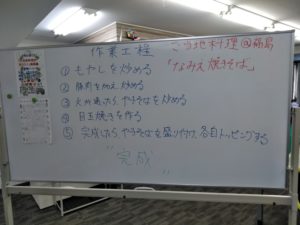 作業工程
ご当地料理@福島
「なみえ焼そば」
① もやしを炒める
② 豚肉を加え炒める
③ 火が通ったらやきそばを炒める
④ 目玉焼きを作る
⑤ 完成したらやきそばを盛り付けて各自トッピングする
"完成"